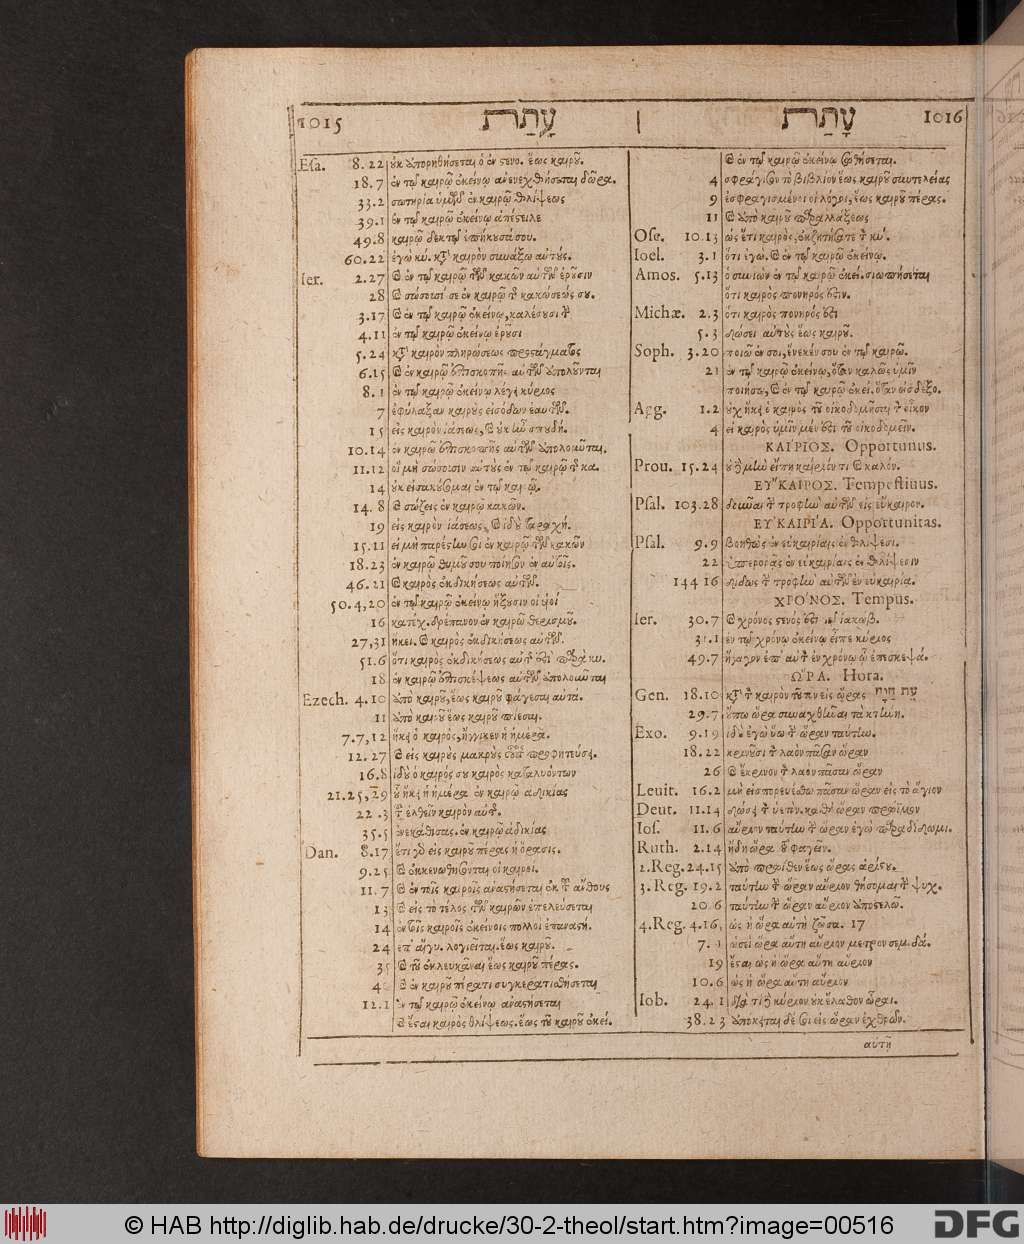 1015 עָתַת | עָתַת 1016
Esa. 8.22 οὐκ ἀπορηθήσεται ὁ ἐν στενο. ἕως καιροῦ.
18.7 ἐν τῷ καιρῷ ἐκείνῳ ἀνενεχθήσεται δῶρα.
33.2 σωτηρία ὑμῶν ἐν καιρῷ θλίψεως
39.1 ἐν τῷ καιρῷ ἐκείνῳ ἀπέστειλε
49.8 καιρῷ δεκτῷ ἐπήκουσά σου.
60.22 ἐγὼ κύ. κατὰ καιρὸν συνάξω αὐτούς.
Ier. 2.27 καὶ ἐν τῷ καιρῷ τῶν κακῶν αὐτῶν ἐροῦσιν
28 καὶ σώσουσί σε ἐν καιρῷ τῆς κακώσεώς σου.
3.17 καὶ ἐν τῷ καιρῷ ἐκείνῳ, καλέσουσι τὴν
4.11 ἐν τῷ καιρῷ ἐκείνῳ ἐροῦσι
5.24 κατὰ καιρὸν πληρώσεως προστάγματος
6.15 καὶ ἐν καιρῷ ἐπισκοπῆς αὐτῶν ἀπολοῦνται
8.1 ἐν τῷ καιρῷ ἐκείνῳ λέγει κύριος
7 ἐφύλαξαν καιροὺς εἰσόδων ἑαυτῶν.
15 εἰς καιρὸν ἰάσεως, καὶ οὐκ ἦν σπουδή.
10.14 ἐν καιρῷ ἐπισκοπῆς αὐτῶν ἀπολοῦνται.
11.12 οἳ μὴ σώσουσιν αὐτοὺς ἐν τῷ καιρῷ τῶν κα.
14 οὐκ εἰσακούσομαι ἐν τῷ καιρῷ.
14.8 καὶ σώζεις ἐν καιρῷ κακῶν.
19 εἰς καιρὸν ἰάσεως, καὶ ἰδοὺ ταραχή.
15.11 εἰ μὴ παρέστην σοι ἐν καιρῷ τῶν κακῶν
18.23 ἐν καιρῷ θυμοῦ σου ποίησον ἐν αὐτοῖς.
46.21 καὶ καιρὸς ἐκδικήσεως αὐτῶν.
50.4,20 ἐν τῷ καιρῷ ἐκείνῳ ἥξουσιν οἱ υἱοὶ
16 κατέχ. δρέπανον ἐν καιρῷ θερισμοῦ.
27,31 ἥκει. καὶ καιρὸς ἐκδικήσεως αὐτῶν.
51.6 ὅτι καιρὸς ἐκδικήσεως αὐτῆς ἐστὶ παρὰ κυ.
18 ἐν καιρῷ ἐπισκέψεως αὐτῶν ἀπολοῦνται
Ezech. 4.10 ἀπὸ καιροῦ, ἕως καιροῦ φάγεσαι αὐτά.
11 ἀπὸ καιροῦ ἕως καιροῦ πίεσαι.
7.7,12 ἥκει ὁ καιρὸς, ἤγγικεν ἡ ἡμέρα.
12.27 καὶ εἰς καιροὺς μακροὺς οὗτος προφητεύσει.
16.8 ἰδοὺ ὁ καιρός σου καιρὸς καταλυόντων
21.25,29 οὗ ἥκει ἡ ἡμέρα ἐν καιρῷ ἀδικίας
22.3 τοῦ ἐλθεῖν καιρὸν αὐτῆς.
35.5 ἐνεκάθισας. ἐν καιρῷ ἀδικίας
Dan. 8.17 ἔτι γὰρ εἰς καιροῦ πέρας ἡ ὅρασις.
9.25 καὶ ἐκκενωθήσονται οἱ καιροί.
11.7 καὶ ἐν τοῖς καιροῖς ἀναστήσεται ἐκ τοῦ ἄνθους
13 καὶ εἰς τὸ τέλος τῶν καιρῶν ἐπελεύσεται
14 ἐν τοῖς καιροῖς ἐκείνοις πολλοὶ ἐπαναστή.
24 ἐπ' αἴγυ. λογιεῖται. ἕως καιροῦ.
35 καὶ τοῦ ἐκλευκᾶναι ἕως καιροῦ πέρας.
40 καὶ ἐν καιροῦ πέρατι συγκερατισθήσεται
12.1 ἐν τῷ καιρῷ ἐκείνῳ ἀναστήσεται
καὶ ἔσται καιρὸς θλίψεως. ἕως τοῦ καιροῦ ἐκεί.
καὶ ἐν τῷ καιρῷ ἐκείνῳ σωθήσεται.
4 σφράγισον τὸ βιβλίον ἕως καιροῦ συντελείας
9 ἐσφραγισμένοι οἱ λόγοι, ἕως καιροῦ πέρας.
11 καὶ ἀπὸ καιροῦ παραλλάξεως
Ose. 10.13 ὡς ἔτι καιρὸς, ἐκζητήσατε τὸν κύ.
Ioel. 3.1 ὅτι ἐγὼ. καὶ ἐν τῷ καιρῷ ἐκείνῳ.
Amos. 5.13 ὁ συνιὼν ἐν τῷ καιρῷ ἐκεί. σιωπήσεται
ὅτι καιρὸς πονηρός ἐστιν.
Michæ. 2.3 ὅτι καιρὸς πονηρός ἐστι
5.3 δώσει αὐτοὺς ἕως καιροῦ.
Soph. 3.20 ποιῶ ἐν σοι, ἕνεκέν σου ἐν τῷ καιρῷ.
21 ἐν τῷ καιρῷ ἐκείνῳ, ὅταν καλῶς ὑμῖν
ποιήσω, καὶ ἐν τῷ καιρῷ ἐκεί. ὅταν εἰσδέξο.
Agg. 1.2 οὐχ ἥκει ὁ καιρὸς τοῦ οἰκοδομῆσαι τὸν οἶκον
4 εἰ καιρὸς ὑμῖν μέν ἐστι τοῦ οἰκοδομεῖν.
ΚΑΙΡΙΟΣ. Opportunus.
Prou. 15.24 οὐδὲ μὴ εἴπῃ καίριόν τι καὶ καλόν.
ΕΥ῎ΚΑΙΡΟΣ. Tempestiuus.
Psal. 103.28 δοῦναι τὴν τροφὴν αὐτῶν εἰς εὔκαιρον.
ΕΥ᾿ΚΑΙΡΙ΄Α. Opportunitas.
Psal. 9.9 βοηθὸς ἐν εὐκαιρίαις ἐν θλίψεσι.
22 ὑπερορᾷς ἐν εὐκαιρίαις ἐν θλίψεσιν
144 16 δίδως τὴν τροφὴν αὐτῶν ἐν εὐκαιρίᾳ.
ΧΡΟ΄ΝΟΣ. Tempus.
Ier. 30.7 καὶ χρόνος στενός ἐστι τῷ ἰακώβ.
31.1 ἐν τῷ χρόνῳ ἐκείνῳ εἶπε κύριος
49.7 ἤγαγον ἐπ' αὐτὸν ἐν χρόνῳ ᾧ ἐπεσκεψά.
Ω῞ΡΑ. Hora.
Gen. 18.10 κατὰ τὸν καιρὸν τοῦτον εἰς ὥρας עֵת חַיָּה
29.7 οὔπω ὥρα συναχθῆναι τὰ κτήνη.
Exo. 9.19 ἰδοὺ ἐγὼ ὕω τὴν ὥραν ταύτην.
18.22 κρινοῦσι τὸν λαὸν πᾶσαν ὥραν
26 καὶ ἔκρινον τὸν λαὸν πᾶσαν ὥραν
Leuit. 16.2 μὴ εἰσπορευέσθω πᾶσαν ὥραν εἰς τὸ ἅγιον
Deut. 11.14 δώσει τὸν ὑετὸν. καθ' ὥραν πρώϊμον
Ios. 11.6 αὔριον ταύτην τὴν ὥραν ἐγὼ παραδίδωμι.
Ruth. 2.14 ἤδη ὥρα τοῦ φαγεῖν.
2.Reg. 24.15 ἀπὸ πρωΐθεν ἕως ὥρας ἀρίστου.
3.Reg. 19.2 ταύτην τὴν ὥραν αὔριον θήσομαι τὴν ψυχ.
20.6 ταύτην τὴν ὥραν αὔριον ἀποστελῶ.
4.Reg. 4.16, ὡς ἡ ὥρα αὐτὴ ζῶσα. 17
7.1 ὡσεὶ ὥρα αὕτη αὔριον μέτρον σεμιδά.
19 ἔσται ὡς ἡ ὥρα αὕτη αὔριον
10.6 ὡς ἡ ὥρα αὕτη αὔριον
Iob. 24.1 διὰ τί δὲ κύριον οὐκ ἔλαθον ὧραι.
38.23 ἀπόκειται δέ σοι εἰς ὥραν ἐχθρῶν.
αὐτὴ
© HAB http://diglib.hab.de/drucke/30-2-theol/start.htm?image=00516
DFG